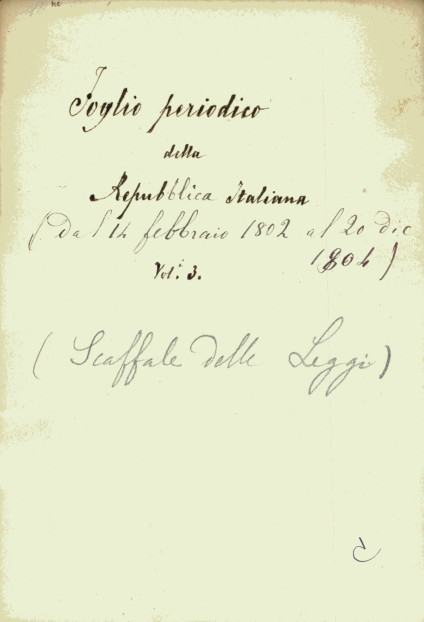 Foglio periodico
della
Repubblica Italiana
(Dal 14 febbraio 1802 al 20 dic
1804)
Vol.i 3.
(Scaffale delle Leggi)